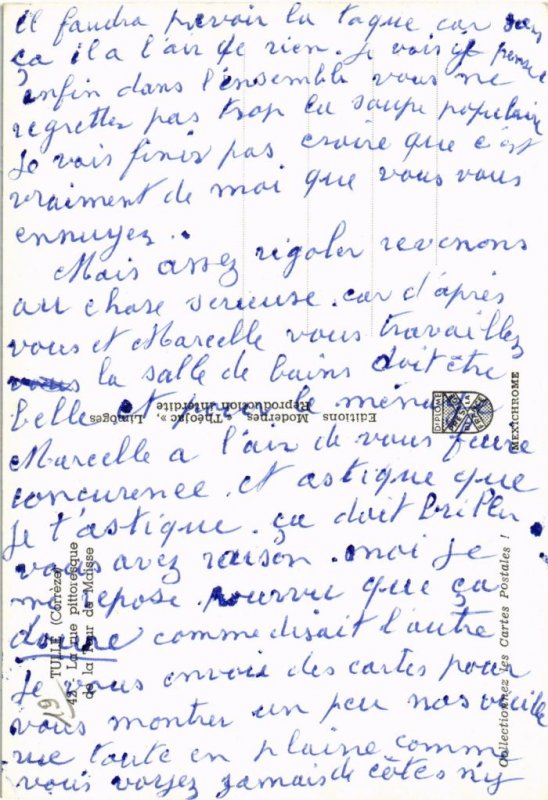 il faudra prevoir la toque car sous
ça il a l'air de rien. Je vois je pense
enfin dans l'ensemble vous ne
regrettez pas trop la soupe populaire
Je vais finir pas croire que c'est
vraiment de moi que vous vous
ennuyez.
Mais assez rigoler revenons
au chose serieuse. car d'après
vous et Marcelle vous travaillez
la salle de bains doit être
belle et le ména
Marcelle a l'air de vous faire
concurence. et astique que
je t'astique. ça doit briller
vous avez raison. moi je
me repose pourvu que ça
doure comme disait l'autre
Je vous envoie des cartes pour
vous montrer un peu nos vieille
rue toute en plaine comme
vous voyez jamais de côtes n'y
Editions Modernes « Théojac », Limoges
Reproduction interdite
DIPLOME
PRESTIGE DE LA FRANCE
MEXICHROME
TULLE (Corrèze)
42 - La rue pittoresque
de la Tour de Maïsse
19
Collectionnez les Cartes Postales !